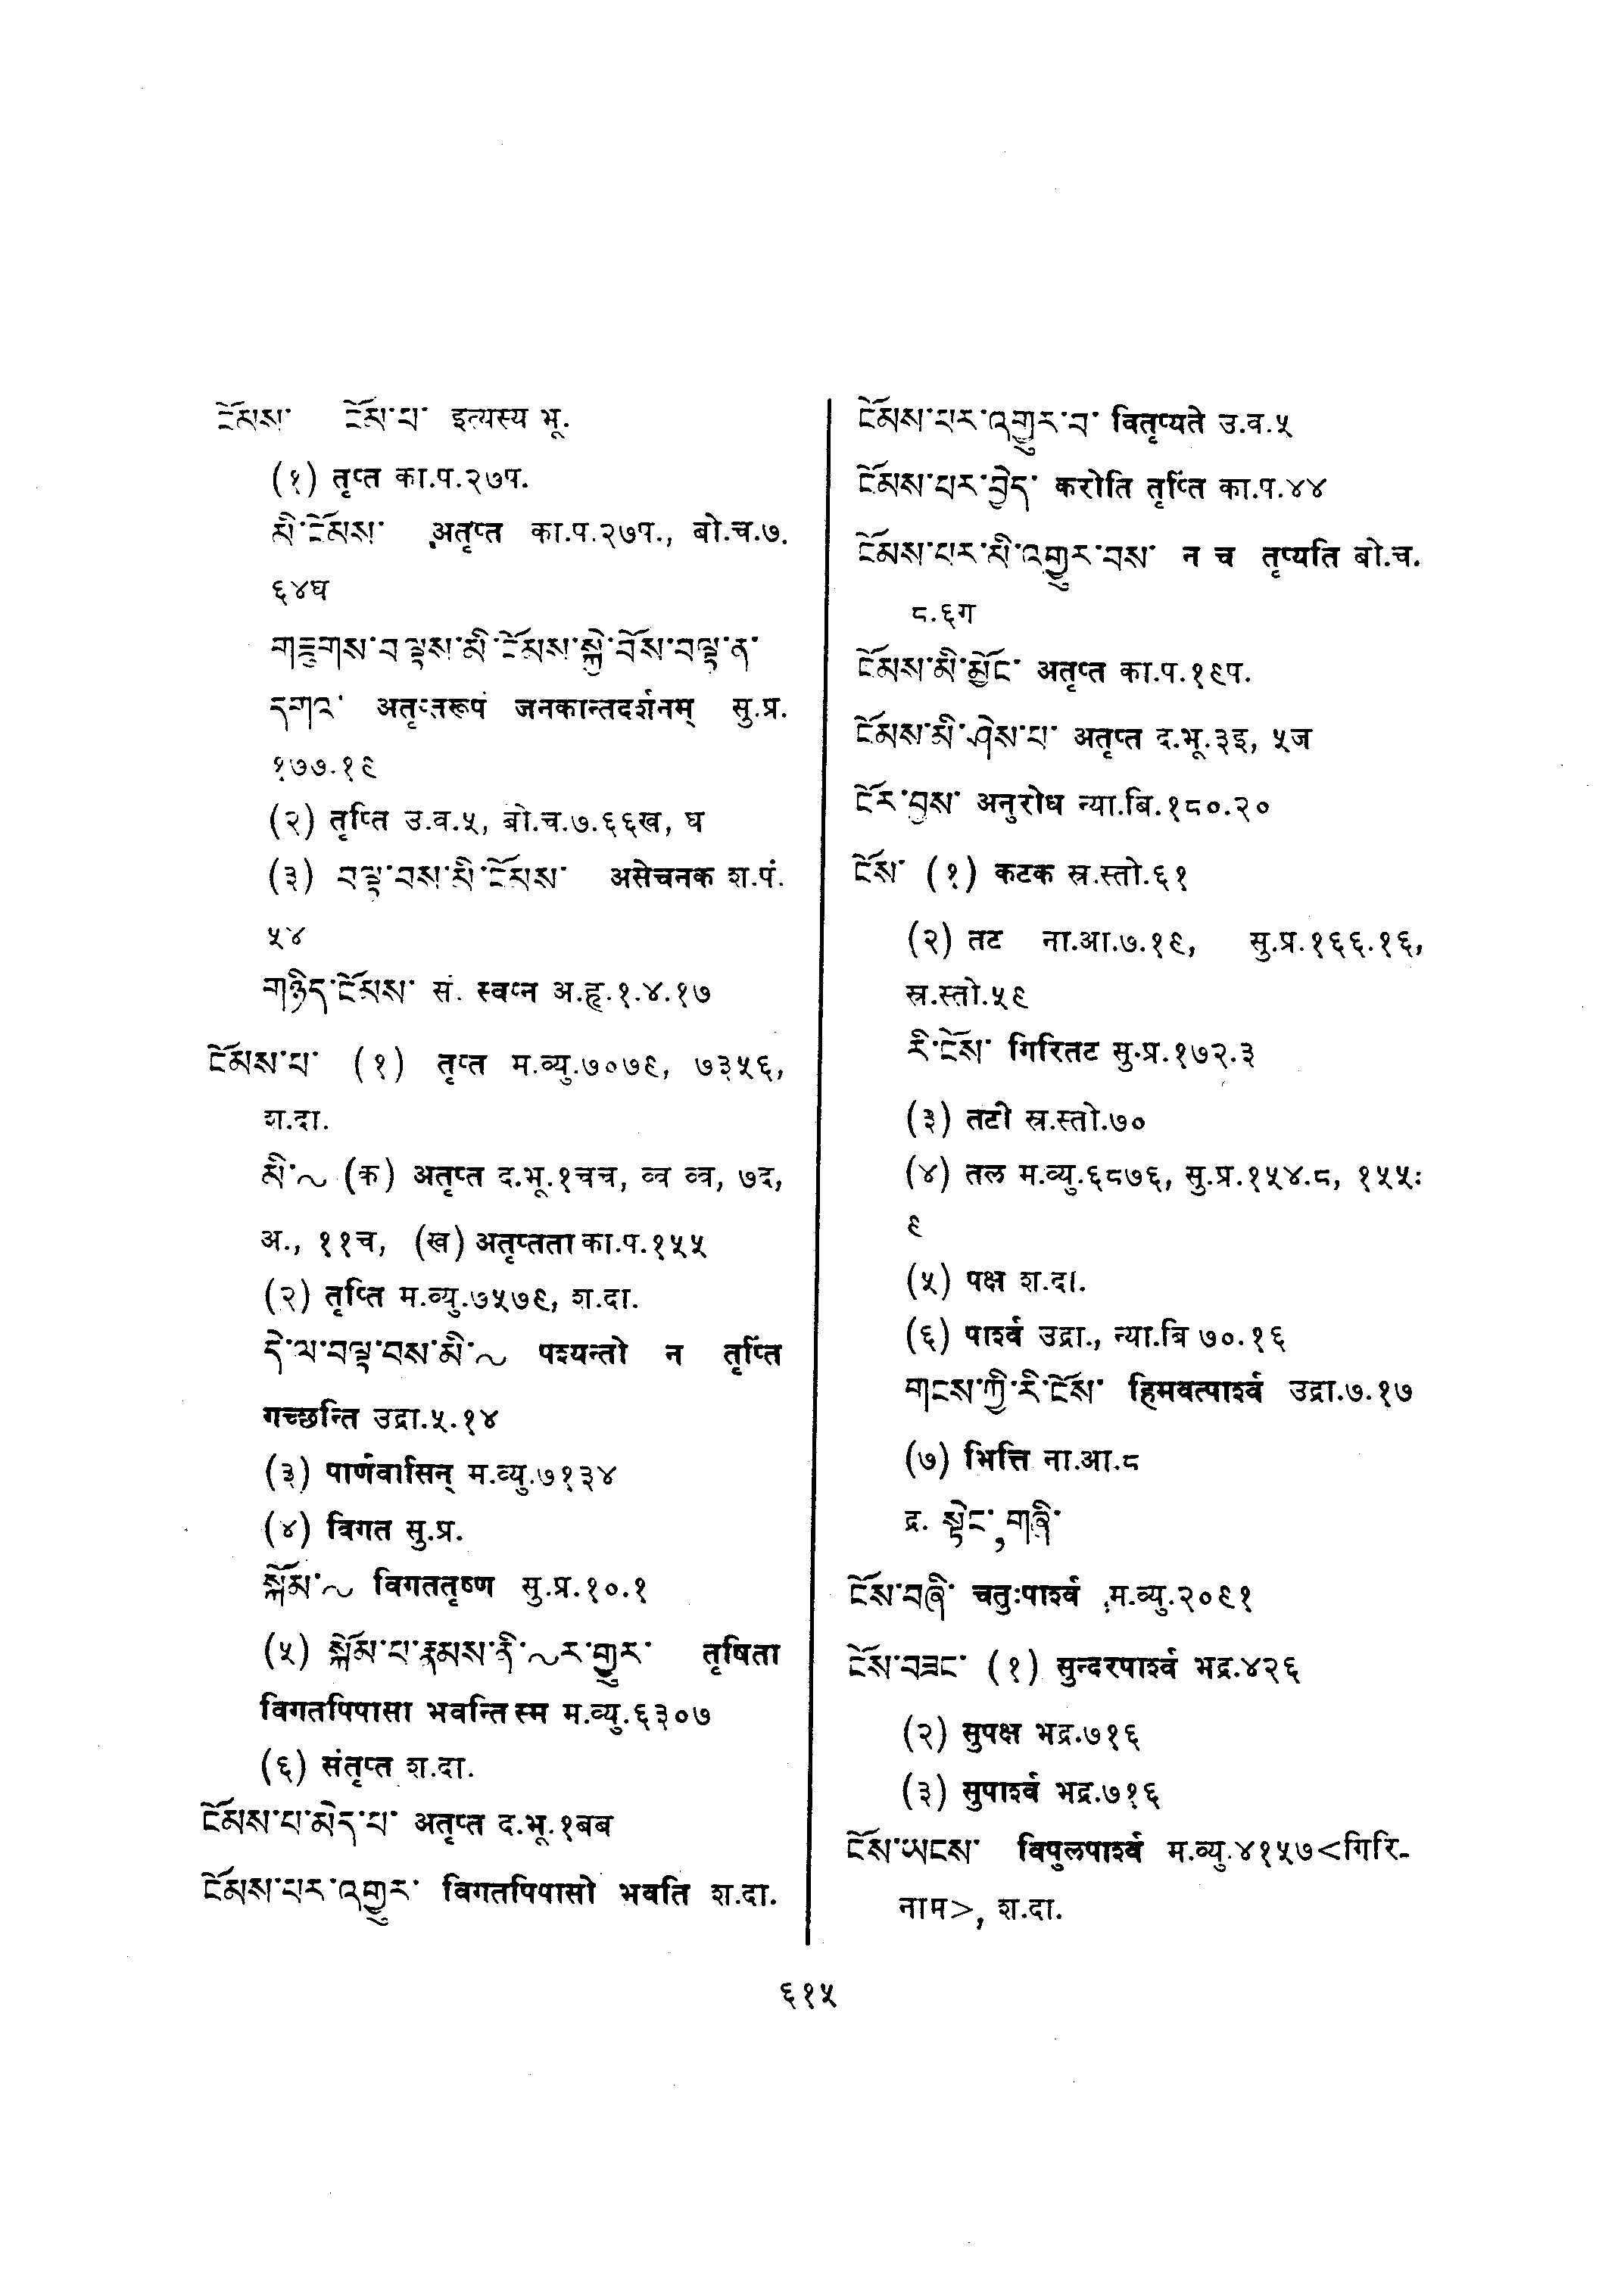 ངོམས་ ངོམ་པ་ इत्यस्य भू.
(१) तृप्त का.प.२७प.
མི་ངོམས་ अतृप्त का.प.२७प., बो.च.७.
६४घ
གཟུགས་བལྟས་མི་ངོམས་སྐྱེ་བོས་བལྟ་ན་
དགའ་ अतृप्तरूपं जनकान्तदर्शनम् सु.प्र.
१७७.१९
(२) तृप्ति उ.व.५, बो.च.७.६६ख, घ
(३) བལྟ་བས་མི་ངོམས་ असेचनक श.पं.
५४
གཉིད་ངོམས་ सं. स्वप्न अ.हृ.१.४.१७
ངོམས་པ་ (१) तृप्त म.व्यु.७०७९, ७३५६,
श.दा.
མི་~ (क) अतृप्त द.भू.१चच, व्व व्व, ७द,
अ., ११च, (ख) अतृप्तता का.प.१५५
(२) तृप्ति म.व्यु.७५७९, श.दा.
དེ་ལ་བལྟ་བས་མི་~ पश्यन्तो न तृप्तिं
गच्छन्ति उद्रा.५.१४
(३) पार्णवासिन् म.व्यु.७१३४
(४) विगत सु.प्र.
སྐོམ་~ विगततृष्ण सु.प्र.१०.१
(५) སྐོམ་པ་རྣམས་ནི་~ར་གྱུར་ तृषिता
विगतपिपासा भवन्ति स्म म.व्यु.६३०७
(६) संतृप्त श.दा.
ངོམས་པ་མེད་པ་ अतृप्त द.भू.१बब
ངོམས་པར་འགྱུར་ विगतपिपासो भवति श.दा.
ངོམས་པར་འགྱུར་བ་ वितृप्यते उ.व.५
ངོམས་པར་བྱེད་ करोति तृप्तिं का.प.४४
ངོམས་པར་མི་འགྱུར་བས་ न च तृप्यति बो.च.
८.६ग
ངོམས་མི་མྱོང་ अतृप्त का.प.१९प.
ངོམས་མི་ཤེས་པ་ अतृप्त द.भू.३इ, ५ज
ངོར་བྱས་ अनुरोध न्या.बि.१८०.२०
ངོས་ (१) कटक स्र.स्तो.६१
(२) तट ना.आ.७.१९, सु.प्र.१६६.१६,
स्र.स्तो.५९
རི་ངོས་ गिरितट सु.प्र.१७२.३
(३) तटी स्र.स्तो.७०
(४) तल म.व्यु.६८७६, सु.प्र.१५४.८, १५५:
९
(५) पक्ष श.दा.
(६) पार्श्व उद्रा., न्या.बि ७०.१६
གངས་ཀྱི་རི་ངོས་ हिमवत्पार्श्व उद्रा.७.१७
(७) भित्ति ना.आ.८
द्र. སྟེང་,གཞི་
ངོས་བཞི་ चतुःपार्श्व म.व्यु.२०९१
ངོས་བཟང་ (१) सुन्दरपार्श्व भद्र.४२६
(२) सुपक्ष भद्र.७१६
(३) सुपार्श्व भद्र.७१६
ངོས་ཡངས་ विपुलपार्श्व म.व्यु.४१५७<गिरि-
नाम>, श.दा.
६१५